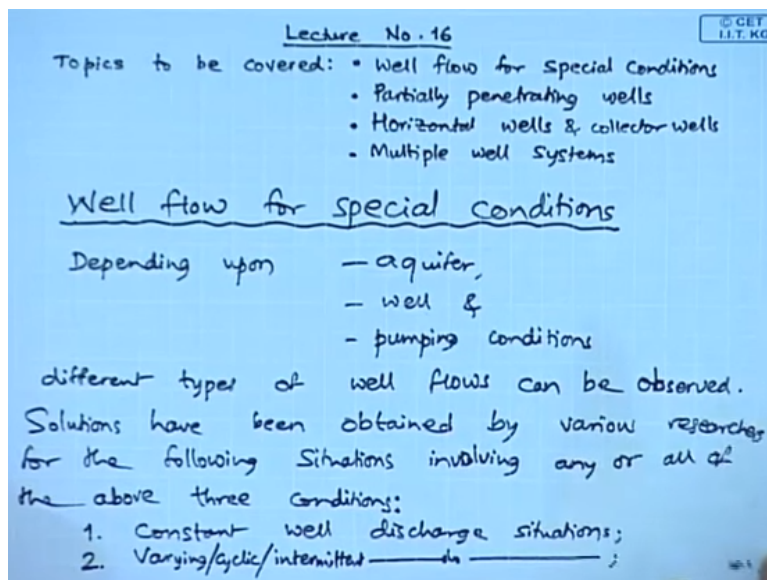 Lecture No. 16
© CET
I.I.T. KG
Topics to be covered: • Well flow for special conditions
• Partially penetrating wells
• Horizontal wells & collector wells
• Multiple well systems
Well flow for special conditions
Depending upon - aquifer,
- well &
- pumping conditions
different types of well flows can be observed.
Solutions have been obtained by various researches
for the following situations involving any or all of
the above three conditions:
1. Constant well discharge situations;
2. Varying/cyclic/intermittent ——do—— ;